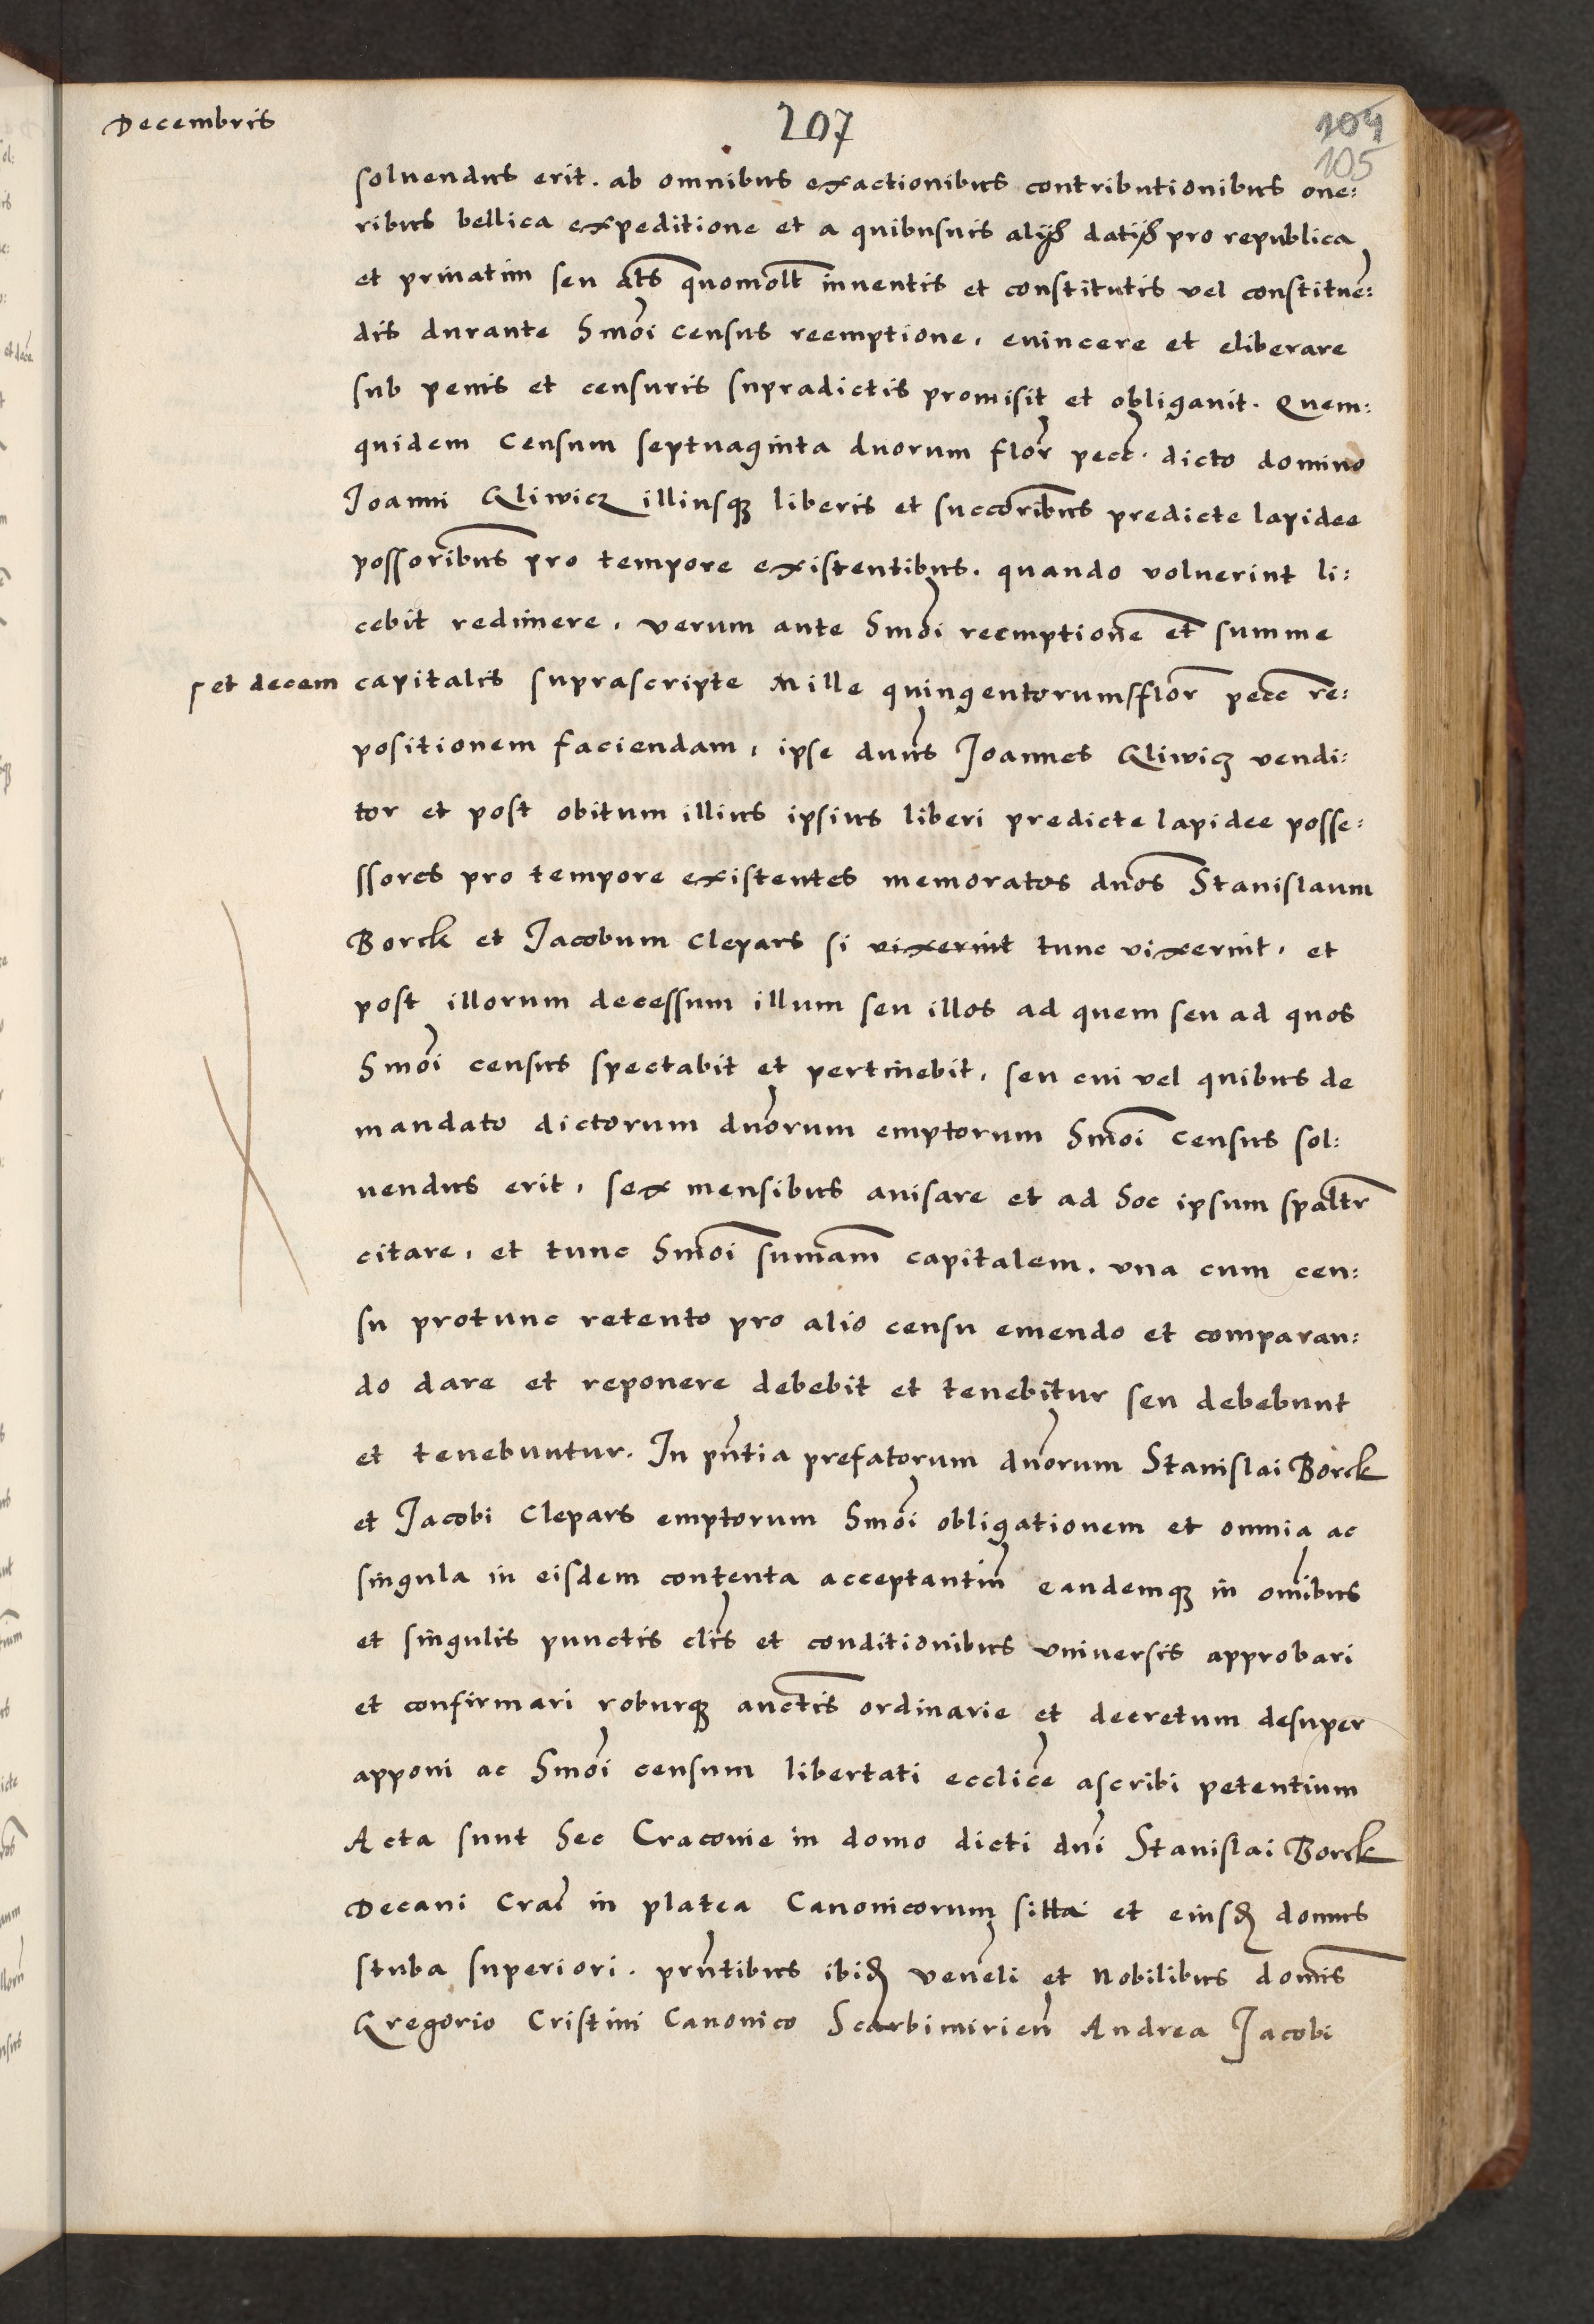 Decembris
207
104
105
soluendus erit. ab omnibus exactionibus contributionibus one:
ribus bellica expeditione et a quibusuis alijs datijs pro republica
et priuatim seu als quomolt inuentis et constitutis vel constitue:
dis durante hmoi census reemptione, euincere et eliberare
sub penis et censuris supradictis promisit et obligauit. Quem:
quidem Censum septuaginta duorum flor pecc. dicto domino
Joanni Gliwicz illiusq liberis et succoribus predicte lapidee
possoribus pro tempore existentibus. quando voluerint li:
cebit redimere, verum ante hmoi reemptione et summe
et decem capitalis suprascripte Mille quingentorum flor pecc re:
positionem faciendam, ipse dnus Joannes Gliwicz vendi:
tor et post obitum illius ipsius liberi predicte lapidee posse:
ssores pro tempore existentes memoratos dnos Stanislaum
Borck et Jacobum Clepars si vixerint tunc vixerint, et
post illorum decessum illum seu illos ad quem seu ad quos
hmoi census spectabit et pertinebit, seu cui vel quibus de
mandato dictorum dnorum emptorum hmoi census sol:
uendus erit, sex mensibus auisare et ad hoc ipsum spaltr
citare, et tunc hmoi sumam capitalem. vna cum cen:
su protunc retento pro alio censu emendo et comparan:
do dare et reponere debebit et tenebitur seu debebunt
et tenebuntur. In pntia prefatorum dnorum Stanislai Borck
et Jacobi Clepars emptorum hmoi obligationem et omnia ac
singula in eisdem contenta acceptantiu eandemq in omibus
et singulis punctis clis et conditionibus vniuersis approbari
et confirmari roburq auctis ordinarie et decretum desuper
apponi ac hmoi censum libertati ecclice ascribi petentium
Acta sunt hec Cracouie in domo dicti dni Stanislai Borck
Decani Crac in platea Canonicorum sitta et eiusd domus
stuba superiori. pntibus ibid veneli et Nobilibus domis
Gregorio Cristini Canonico Scarbimirien Andrea Jacobi